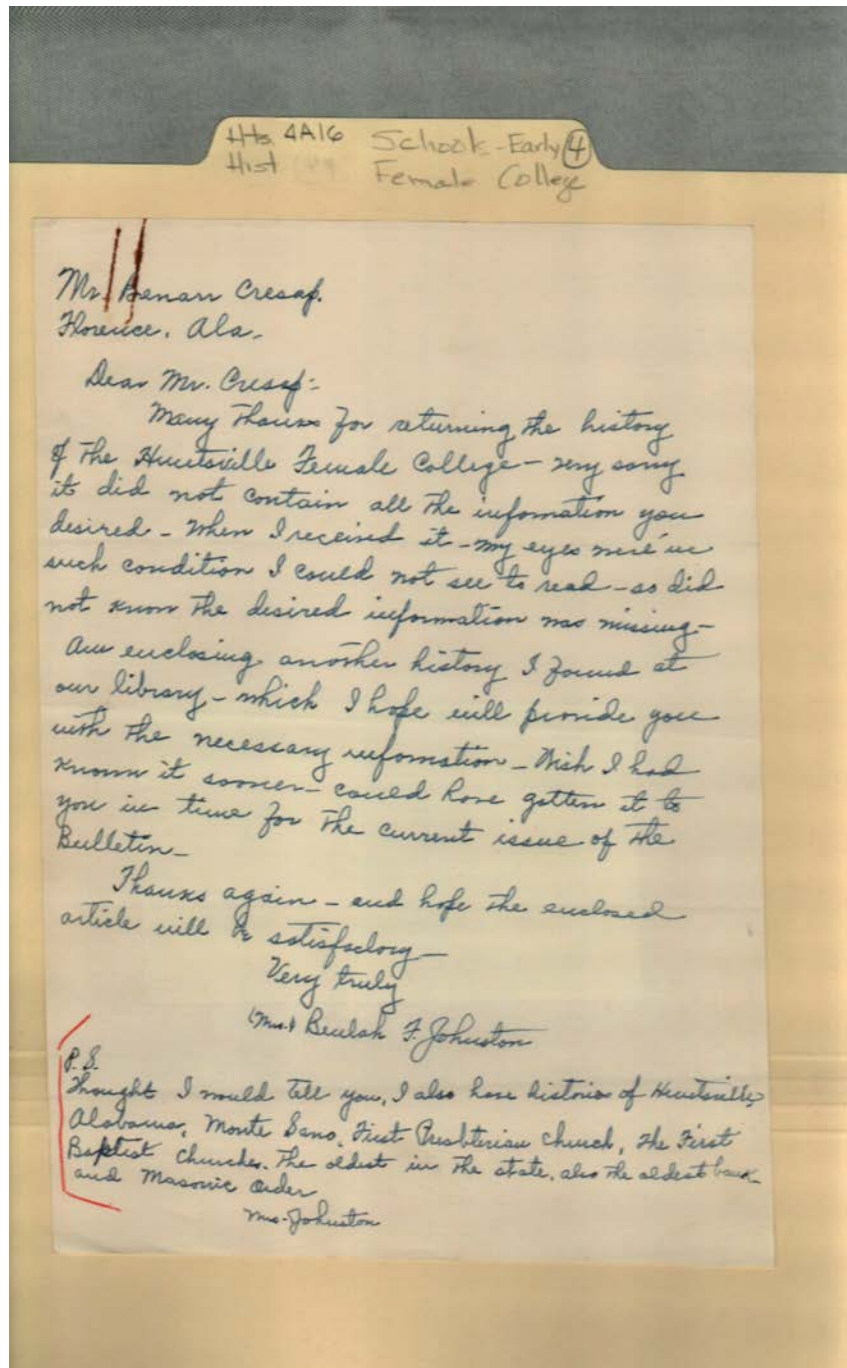 Hts. 4A16 Schools - Early 4
Hist Female College
Mr. Benarr Cresap.
Florence, Ala.
Dear Mr. Cresap:-
Many thanks for returning the history
of the Huntsville Female College - very sorry
it did not contain all the infomation you
desired - When I received it - my eyes were in
such condition I could not see to read - so did
not know the desired information was missing -
Am enclosing another history I found at
our library - which I hope will provide you
with the necessary infomation - Wish I had
known it sooner - could have gotten it to
you in time for the current issue of the
Bulletin -
Thanks again - and hope the enclosed
article will be satisfactory -
Very truly
(Mrs.) Beulah F. Johnston
P.S.
Thought I would tell you, I also have histories of Huntsville,
Alabama, Monte Sano, First Presbterian Church, the First
Baptist Churches. The oldest in the state, also the oldest bank -
and Masonic Order
Mrs. Johnston